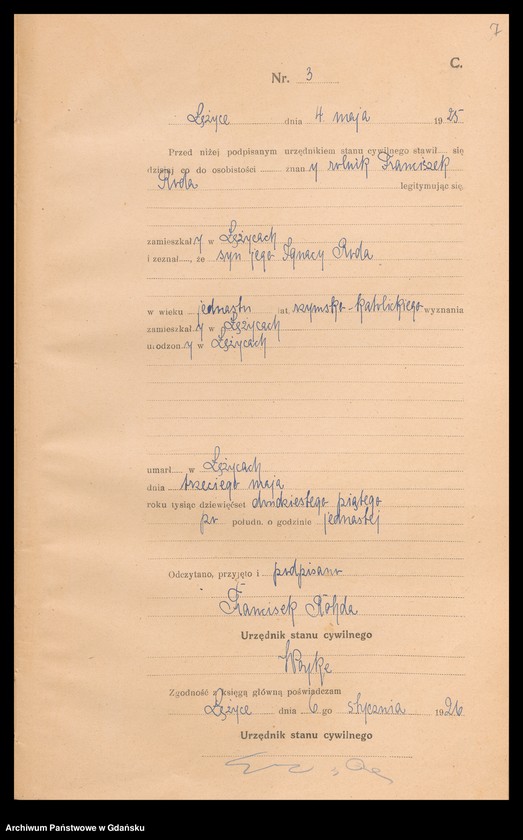 7
C.
Nr. 3
Łężyce dnia 4. maja 1925
Przed niżej podpisanym urzędnikiem stanu cywilnego stawił..... się
dzisiaj co do osobistości ......... znany rolnik Franciszek
Roda legitymując się.
zamieszkały w Łężycach
i zeznał....., że syn jego Ignacy Roda
w wieku jednastu lat rzymsko-katolickiego wyznania
zamieszkały w Łężycach
urodzony w Łężycach
umarł..... w Łężycach
dnia trzeciego maja
roku tysiąc dziewięćset dwudziestego piątego
po połudn. o godzinie jednastej
Odczytano, przyjęto i podpisano
Francisek Rohda
Urzędnik stanu cywilnego
Zgodność z księgą główną poświadczam
Łężyce dnia 6 go stycznia 1926
Urzędnik stanu cywilnego
Archiwum Państwowe w Gdańsku